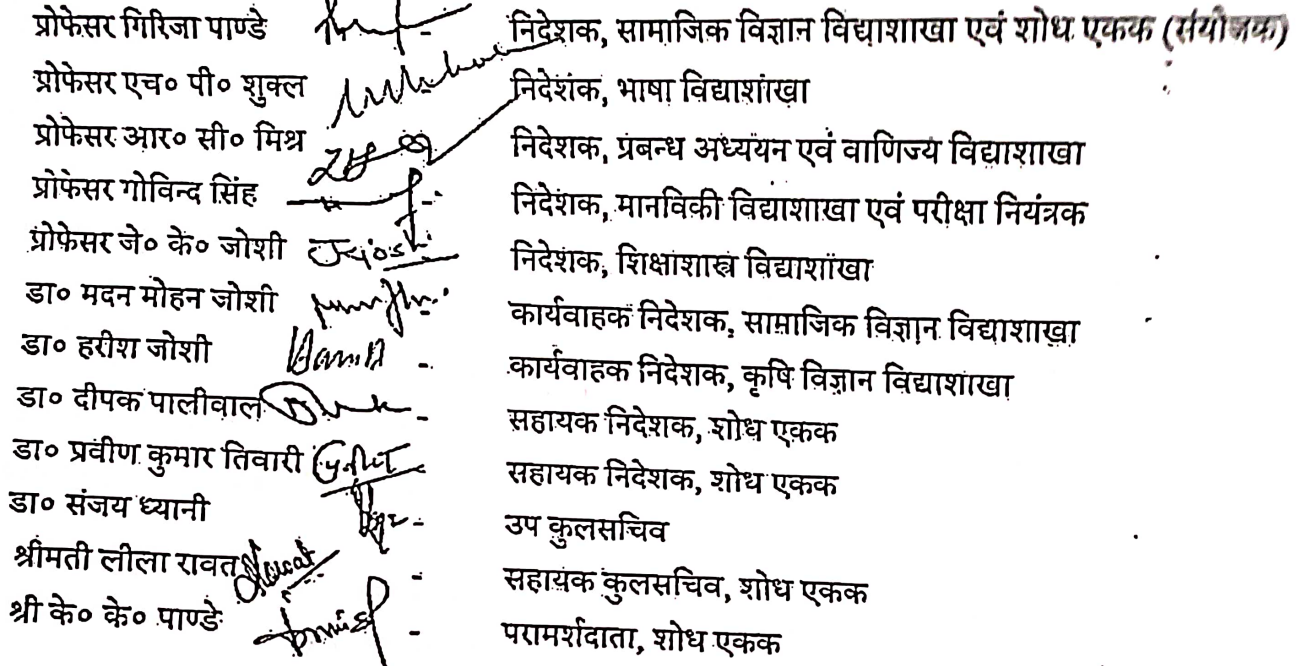 प्रोफेसर गिरिजा पाण्डे - निदेशक, सामाजिक विज्ञान विद्याशाखा एवं शोध एकक (संयोजक)
प्रोफेसर एच० पी० शुक्ल निदेशक, भाषा विद्याशाखा
प्रोफेसर आर० सी० मिश्र निदेशक, प्रबन्ध अध्ययन एवं वाणिज्य विद्याशाखा
प्रोफेसर गोविन्द सिंह - निदेशक, मानविकी विद्याशाखा एवं परीक्षा नियंत्रक
प्रोफेसर जे० के० जोशी Jjoshi निदेशक, शिक्षाशास्त्र विद्याशाखा
डा० मदन मोहन जोशी कार्यवाहक निदेशक, सामाजिक विज्ञान विद्याशाखा
डा० हरीश जोशी - कार्यवाहक निदेशक, कृषि विज्ञान विद्याशाखा
डा० दीपक पालीवाल - सहायक निदेशक, शोध एकक
डा० प्रवीण कुमार तिवारी सहायक निदेशक, शोध एकक
डा० संजय ध्यानी - उप कुलसचिव
श्रीमती लीला रावत Rawat - सहायक कुलसचिव, शोध एकक
श्री के० के० पाण्डे - परामर्शदाता, शोध एकक